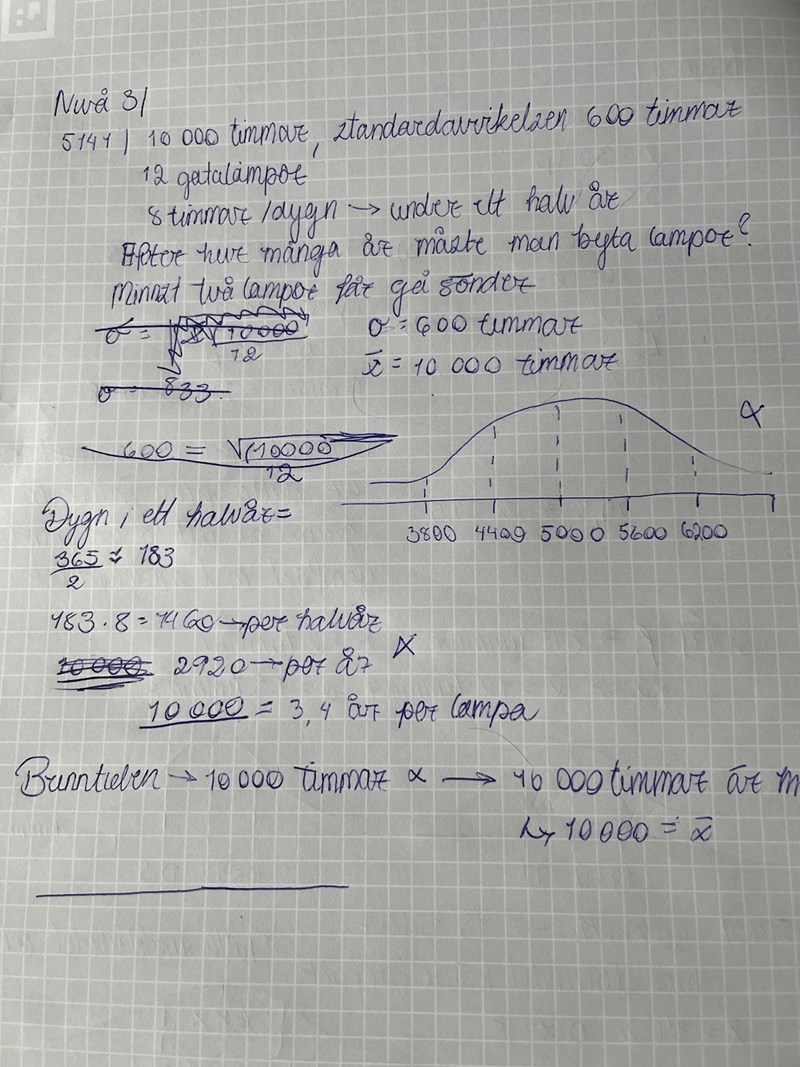 Nivå 3/
5141 | 10 000 timmar, standardavvikelsen 600 timmar
12 gatulampor
8 timmar /dygn → under ett halv år
Efter hur många år måste man byta lampor?
Minst två lampor får gå sönder
σ = √10000 / 12
σ = 600 timmar
σ = 833
x̄ = 10 000 timmar
600 = √(10000 / 12
3800 4400 5000 5600 6200
Dygn i ett halvår =
365/2 ≈ 183
183 · 8 = 1460 → per halvår
10 000 2920 → per år
10 000 = 3,4 år per lampa
Brinntiden → 10 000 timmar → 10 000 timmar är m
↳ 10 000 = x̄